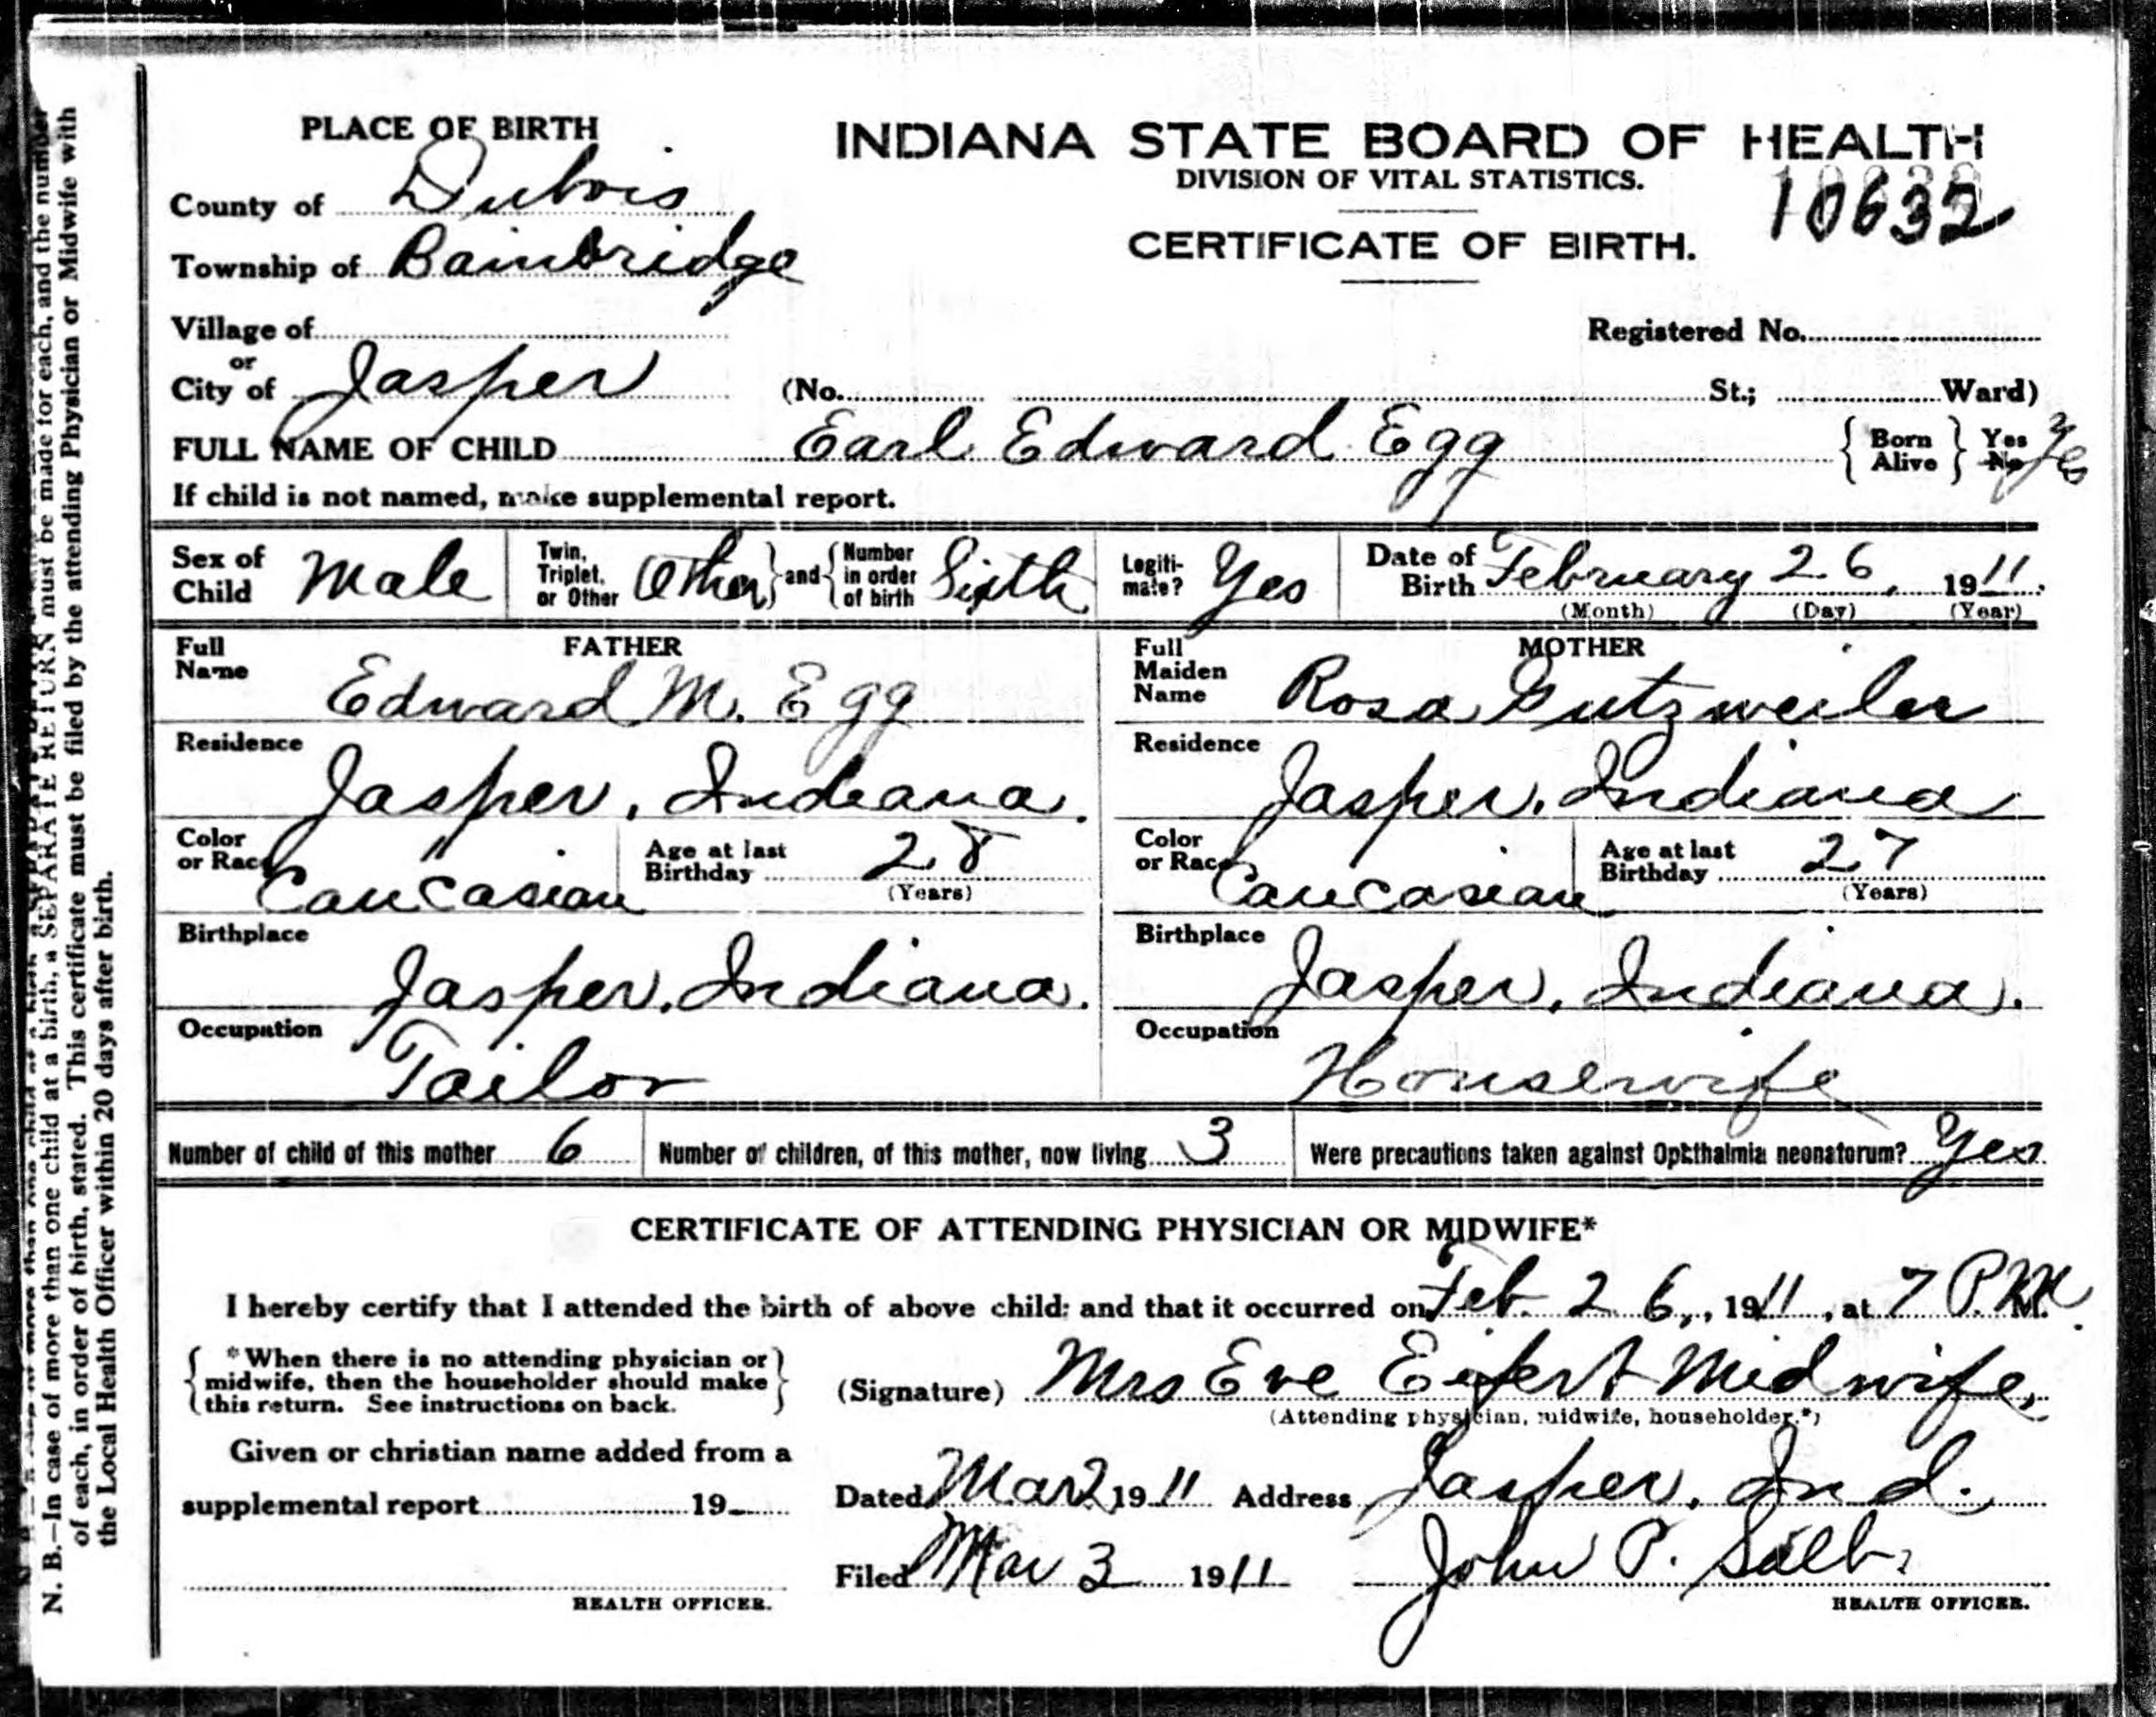 PLACE OF BIRTH
INDIANA STATE BOARD OF HEALTH
DIVISION OF VITAL STATISTICS.
10632
CERTIFICATE OF BIRTH.
County of Dubois
Township of Bainbridge
Village of
Registered No.
or
City of Jasper (No. St.; Ward)
FULL NAME OF CHILD Earl Edward Egg { Born Alive } Yes No Yes
If child is not named, make supplemental report.
Sex of Child Male Twin, Triplet, or Other Other } and { Number in order of birth Sixth Legiti-mate? Yes Date of Birth February 26, 1911.
(Month) (Day) (Year)
FATHER
Full Name Edward M. Egg
Residence
Jasper, Indiana.
Color or Race Caucasian Age at last Birthday 28
(Years)
Birthplace
Jasper, Indiana.
Occupation
Tailor
MOTHER
Full Maiden Name Rosa Gutzweiler
Residence
Jasper, Indiana
Color or Race Caucasian Age at last Birthday 27
(Years)
Birthplace
Jasper, Indiana.
Occupation
Housewife
Number of child of this mother 6 Number of children, of this mother, now living 3 Were precautions taken against Ophthalmia neonatorum? Yes
CERTIFICATE OF ATTENDING PHYSICIAN OR MIDWIFE*
I hereby certify that I attended the birth of above child; and that it occurred on Feb. 26, 1911, at 7 P.M. M.
{ *When there is no attending physician or
midwife, then the householder should make
this return. See instructions on back. }
(Signature) Mrs Eve Eifert Midwife
(Attending physician, midwife, householder.*)
Given or christian name added from a
supplemental report 19
HEALTH OFFICER.
Dated Mar 2 1911 Address Jasper, Ind.
Filed Mar 3 1911 John P. Salb
HEALTH OFFICER.
N. B.—In case of more than one child at a birth, a SEPARATE RETURN must be made for each, and the number
of each, in order of birth, stated. This certificate must be filed by the attending Physician or Midwife with
the Local Health Officer within 20 days after birth.